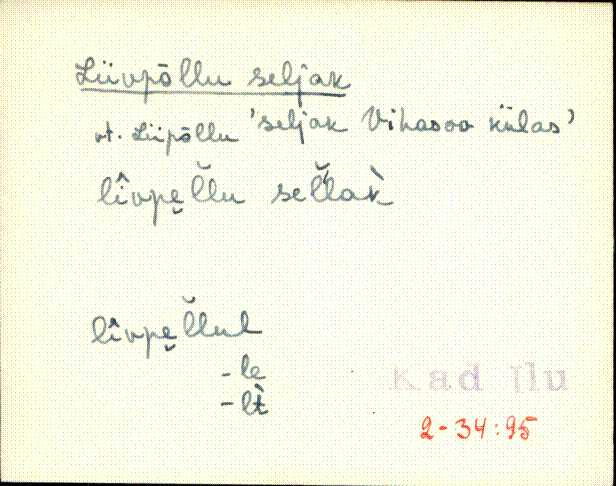 Liivpõllu seljak
vt. Liipõllu 'seljak Vihasoo külas'
lîvpe̮l̆lu sel̆lak̀
lîvpe̮l̆lul
-le
-lt̀
Kad Ilu
2-34:95